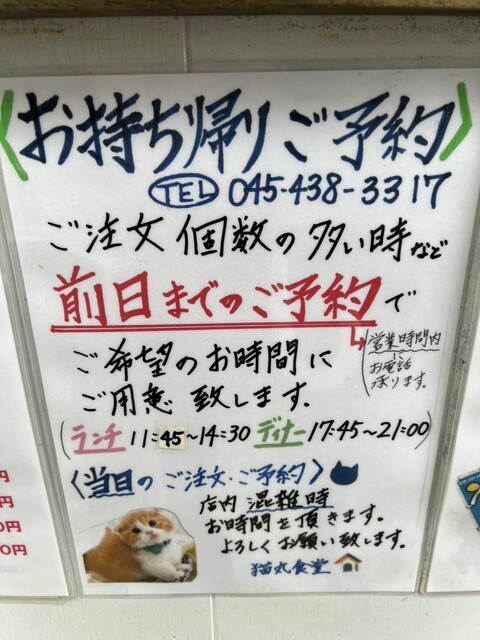 〈お持ち帰りご予約〉
TEL 045-438-3317
ご注文個数の多い時など
前日までのご予約で
営業時間内に
お電話
承ります。
ご希望のお時間に
ご用意致します。
(ランチ 11:45~14:30 ディナー 17:45~21:00)
〈当日のご注文・ご予約〉
店内混雑時
お時間を頂きます。
よろしくお願い致します。
猫丸食堂
円
円
0円
0円